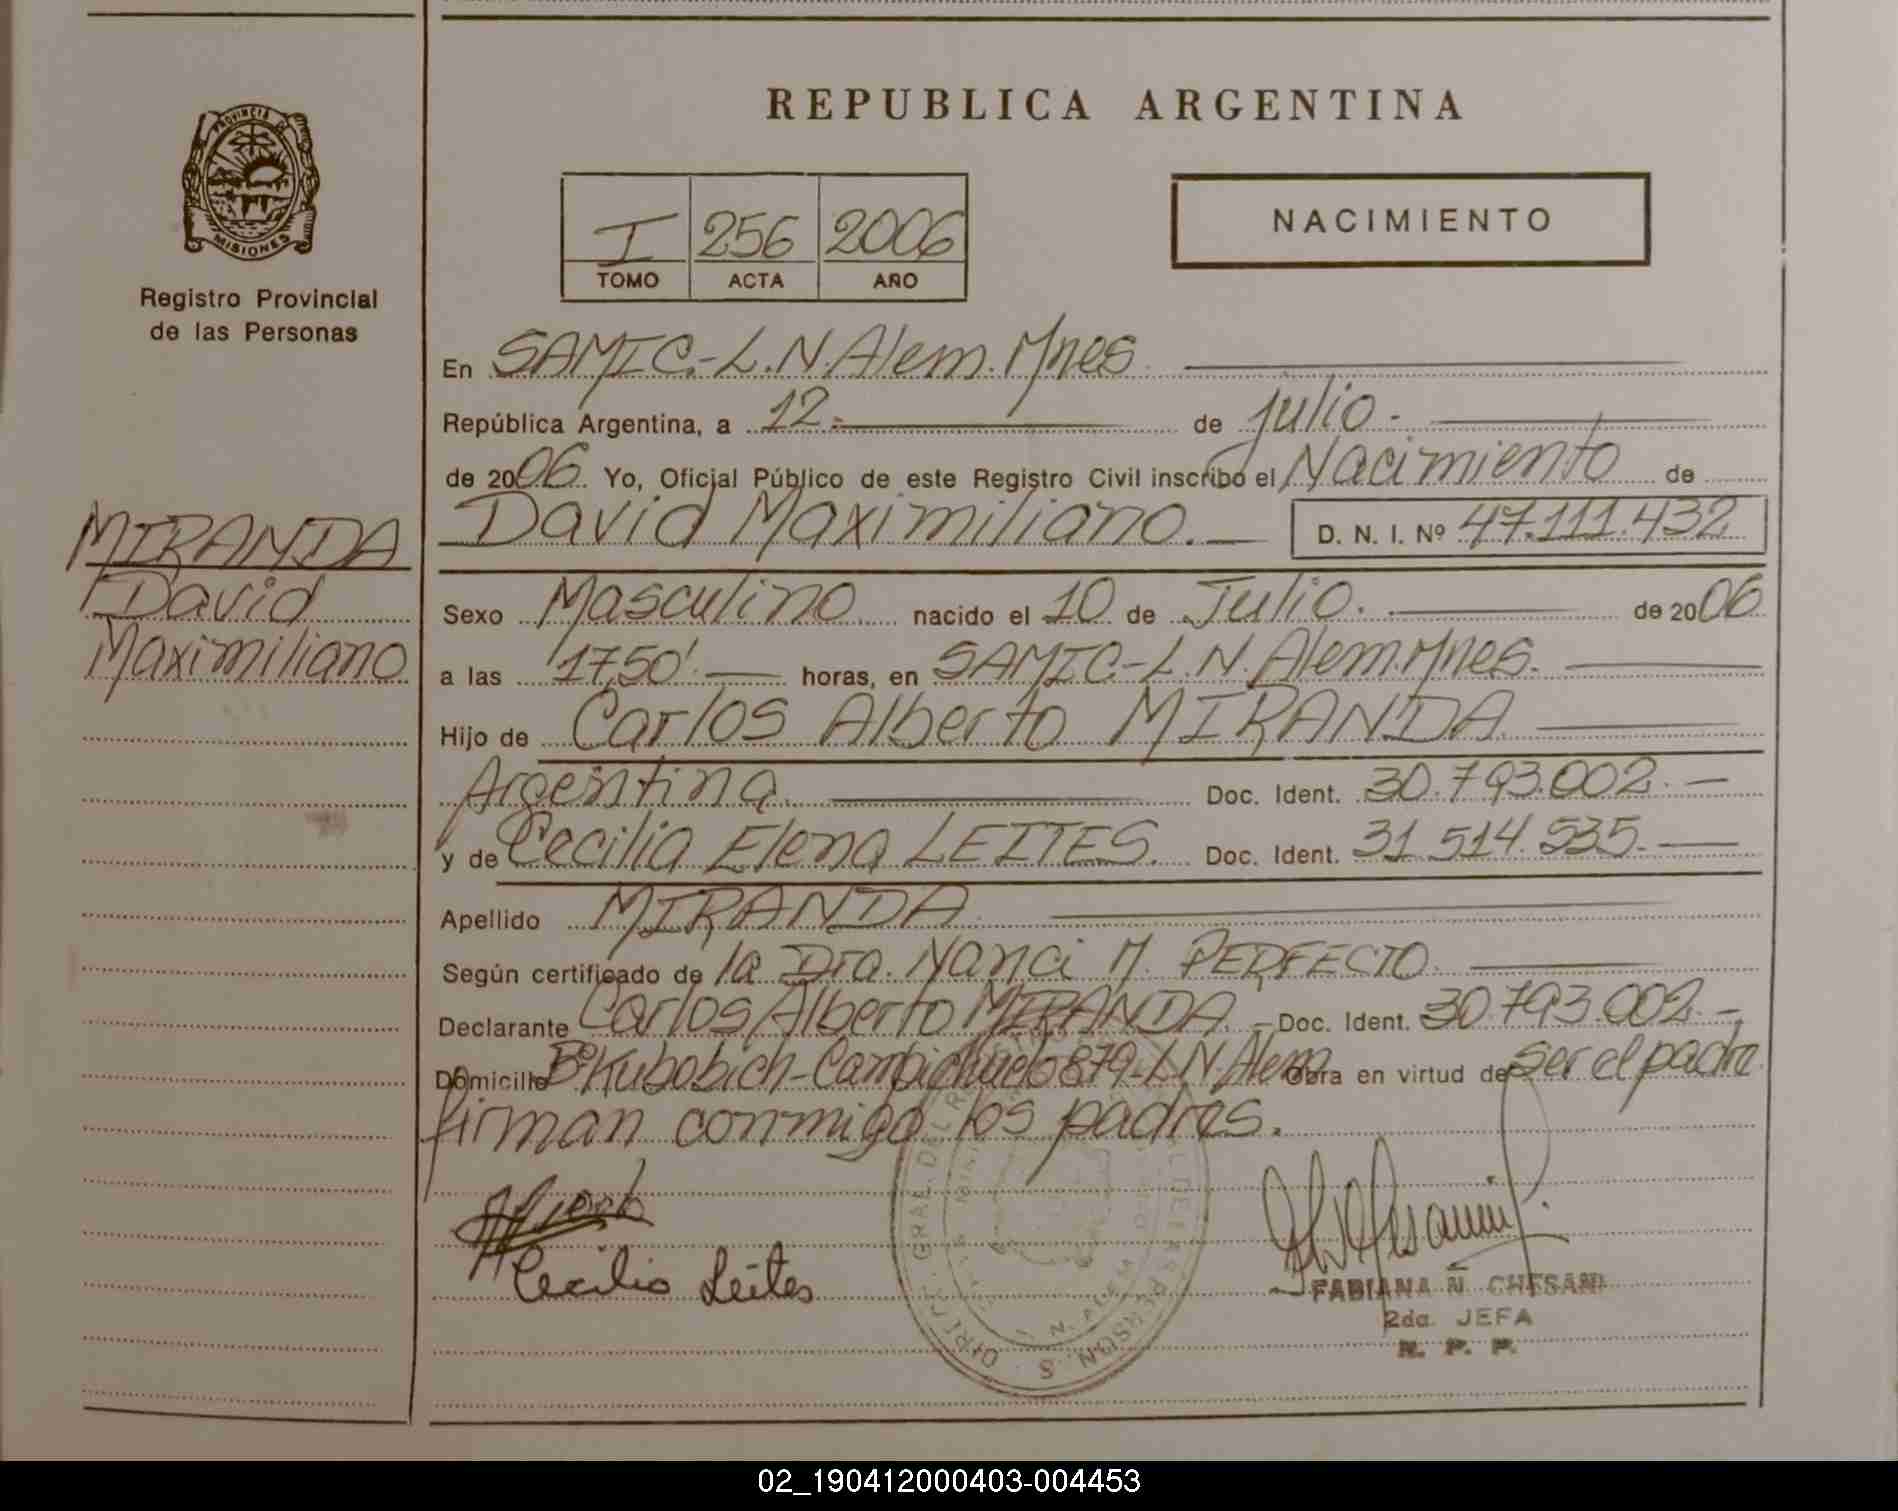 REPUBLICA ARGENTINA
PROVINCIA DE
MISIONES
Registro Provincial
de las Personas
I 256 2006
TOMO ACTA AÑO
NACIMIENTO
En SAMIC.-L.N.Alem.Mnes.
República Argentina, a 12.- de julio.-
de 2006. Yo, Oficial Público de este Registro Civil inscribo el Nacimiento de
David Maximiliano.- D. N. I. Nº 47.111.432
MIRANDA
David
Maximiliano
Sexo Masculino nacido el 10 de Julio. de 2006
a las 17,50'.- horas, en SAMIC-L.N.Alem.Mnes.
Hijo de Carlos Alberto MIRANDA
Argentina. Doc. Ident. 30.793.002.-
y de Cecilia Elena LEITES. Doc. Ident. 31.514.535.-
Apellido MIRANDA
Según certificado de la Dra. Nanci M. PERFECTO.
Declarante Carlos Alberto MIRANDA.- Doc. Ident. 30.793.002.-
Domicilio Bº Kubobich-Cambichuelo 879-L.N.Alem Obra en virtud de ser el padre
firman conmigo los padres.
Cecilia Leites
FABIANA N. CHESANI
2da. JEFA
R. P. P.
02_190412000403-004453